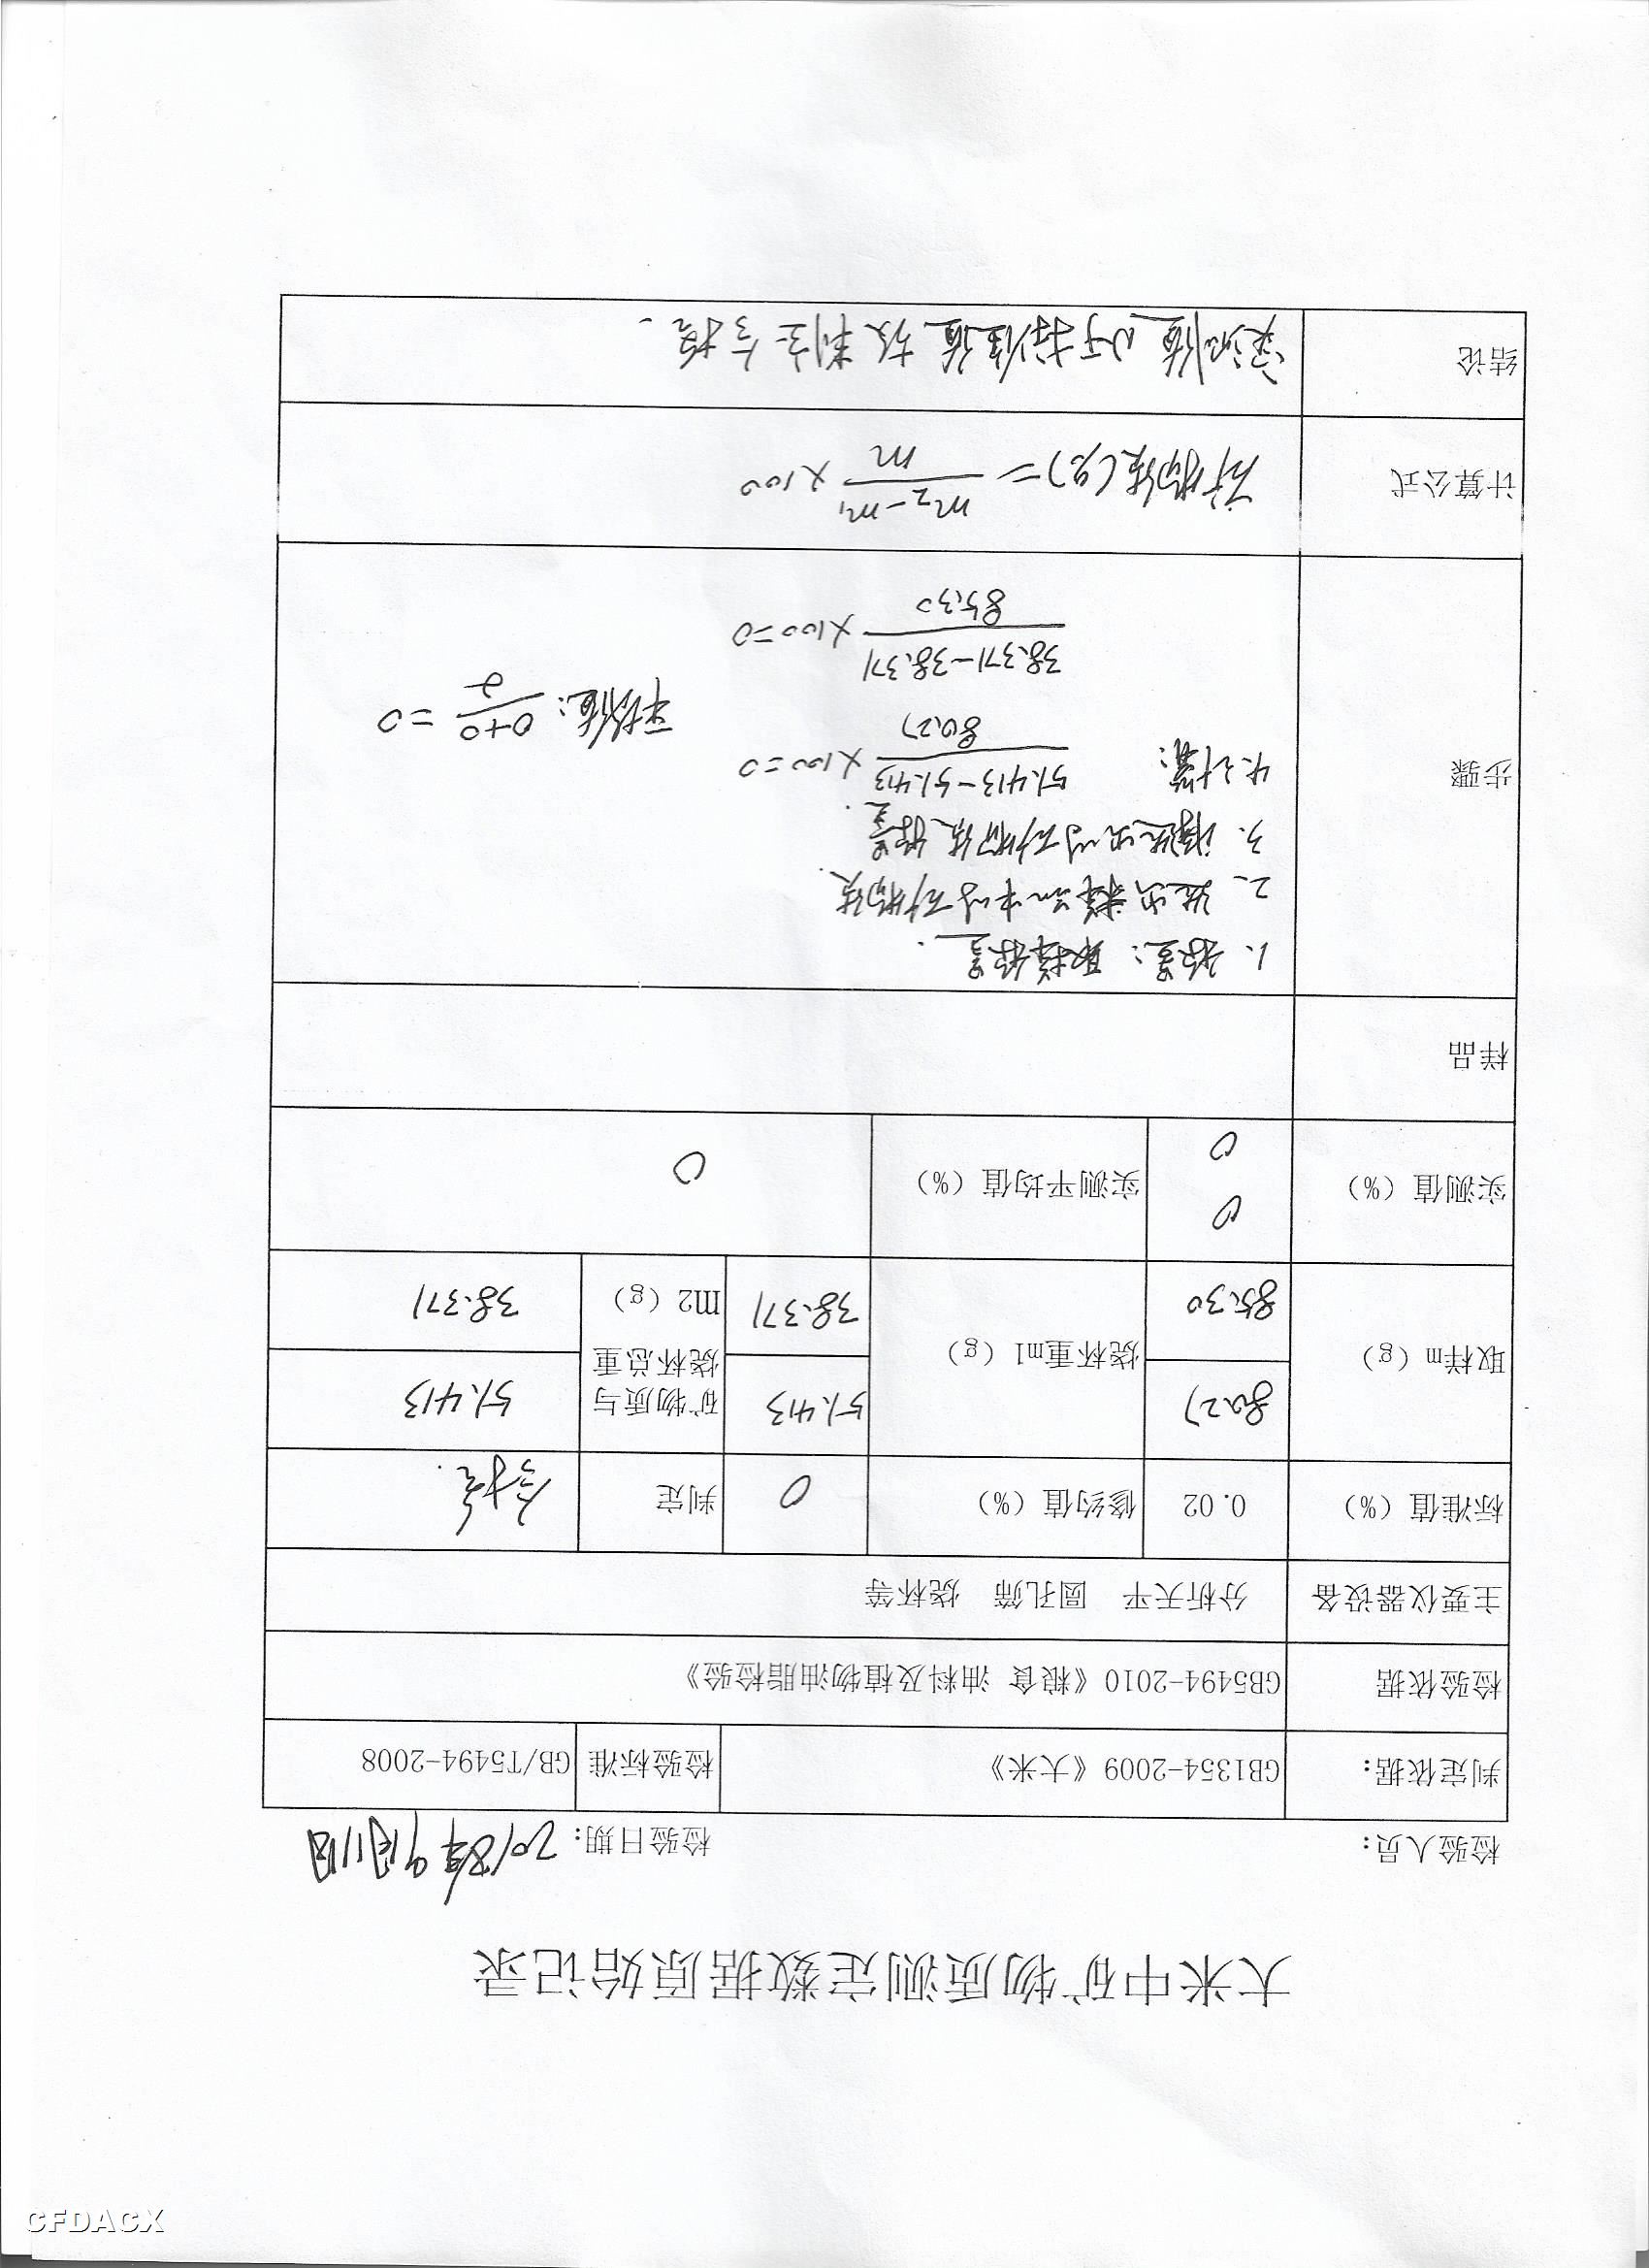 大米中矿物质测定数据原始记录
检验人员： 检验日期：2018年9月11日
判定依据： GB1354-2009《大米》 检验标准 GB/T5494-2008
检验依据 GB5494-2010《粮食 油料及植物油脂检验》
主要仪器设备 分析天平 圆孔筛 烧杯等
标准值（%） 0.02 修约值（%） 0 判定 合格.
取样m（g） 80.27 烧杯重m1（g） 51.413 矿物质与烧杯总重M2（g） 51.413
85.30 38.371 38.371
实测值（%） 0 实测平均值（%） 0
0
样品
步骤
1. 称量：取样称量.
2、选出样品中的矿物质.
3. 将选出的矿物质称量.
4.计算： 51.413-51.413/80.27 ×100=0
平均值：0+0/2 =0
38.371-38.371/85.30 ×100=0
计算公式 矿物质(%)= m2-m1/m ×100
结论 实测值小于标准值 故判定合格.
CFDACX